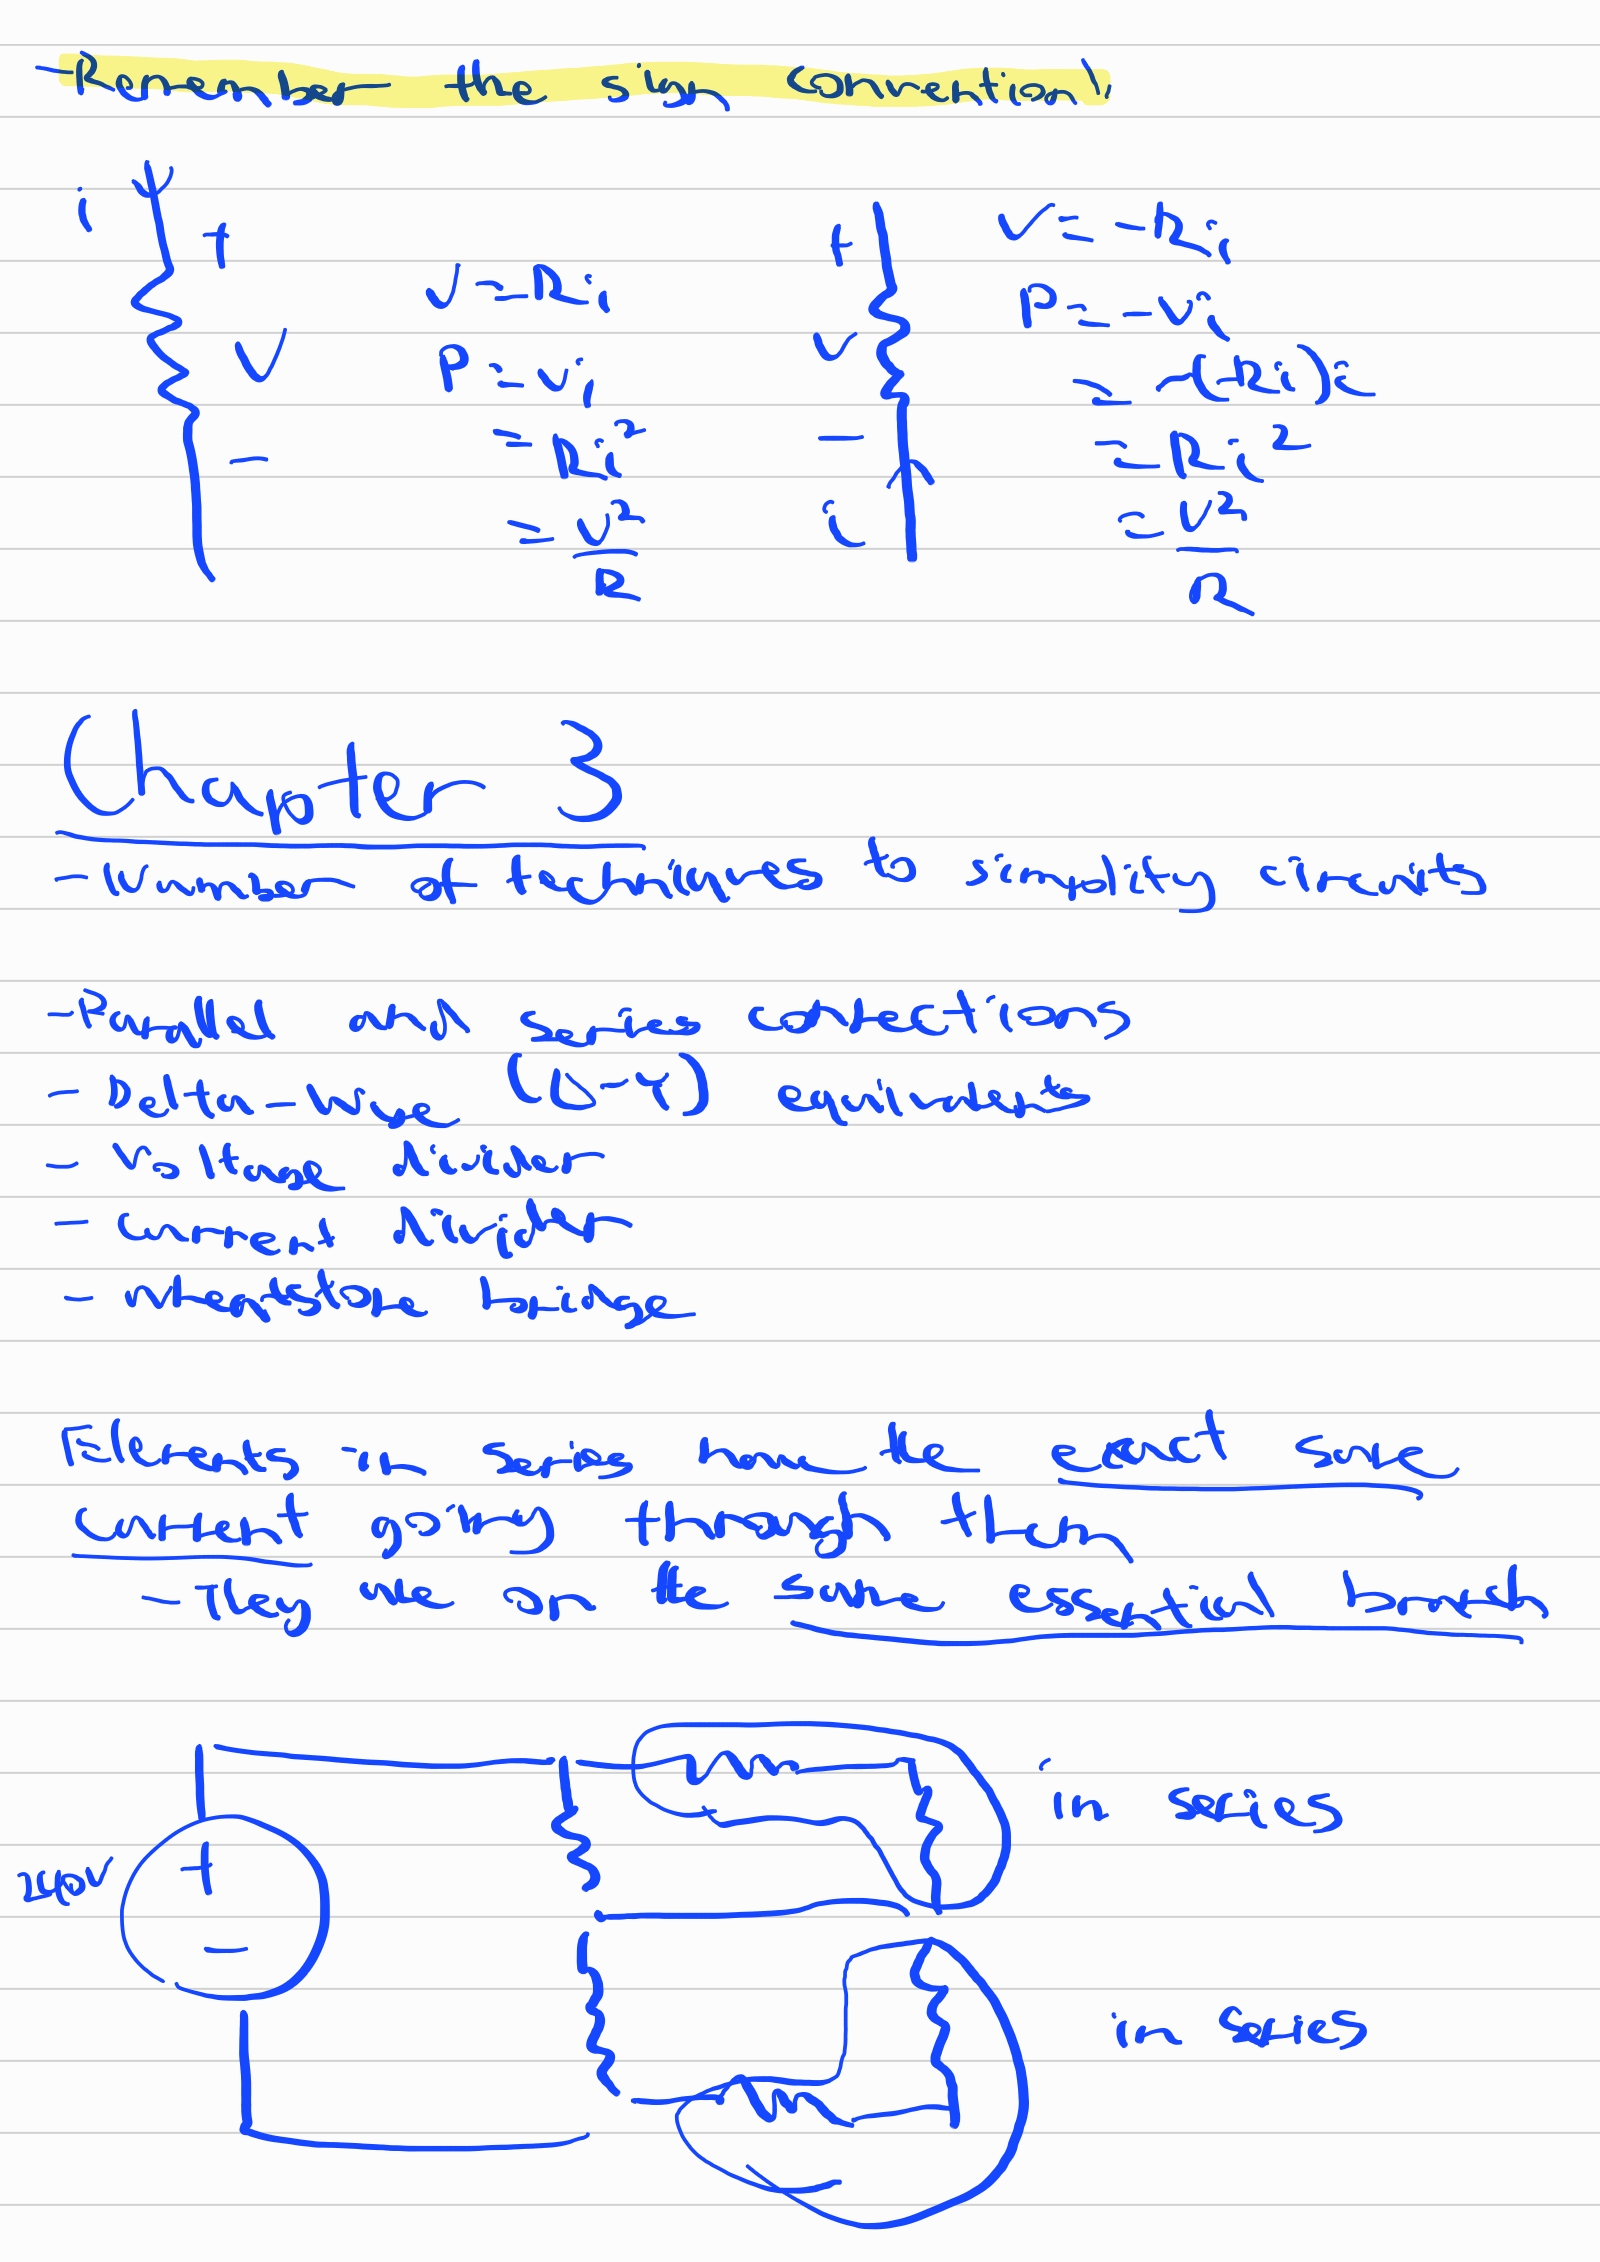 - Remember the sign convention!
i
+
V
-
V = Ri
P = vi
= Ri²
= V²/R
+
V
-
i
V = -Ri
P = -vi
= -(-Ri)i
= Ri²
= V²/R
Chapter 3
- Number of techniques to simplify circuits
- Parallel and series conections
- Delta-Wye (Δ-Y) equivalents
- Voltage divider
- Current divider
- wheatstone bridge
Elements in series have the exact same
current going through them
- They are on the same essential branch
in series
240V
+
-
in series